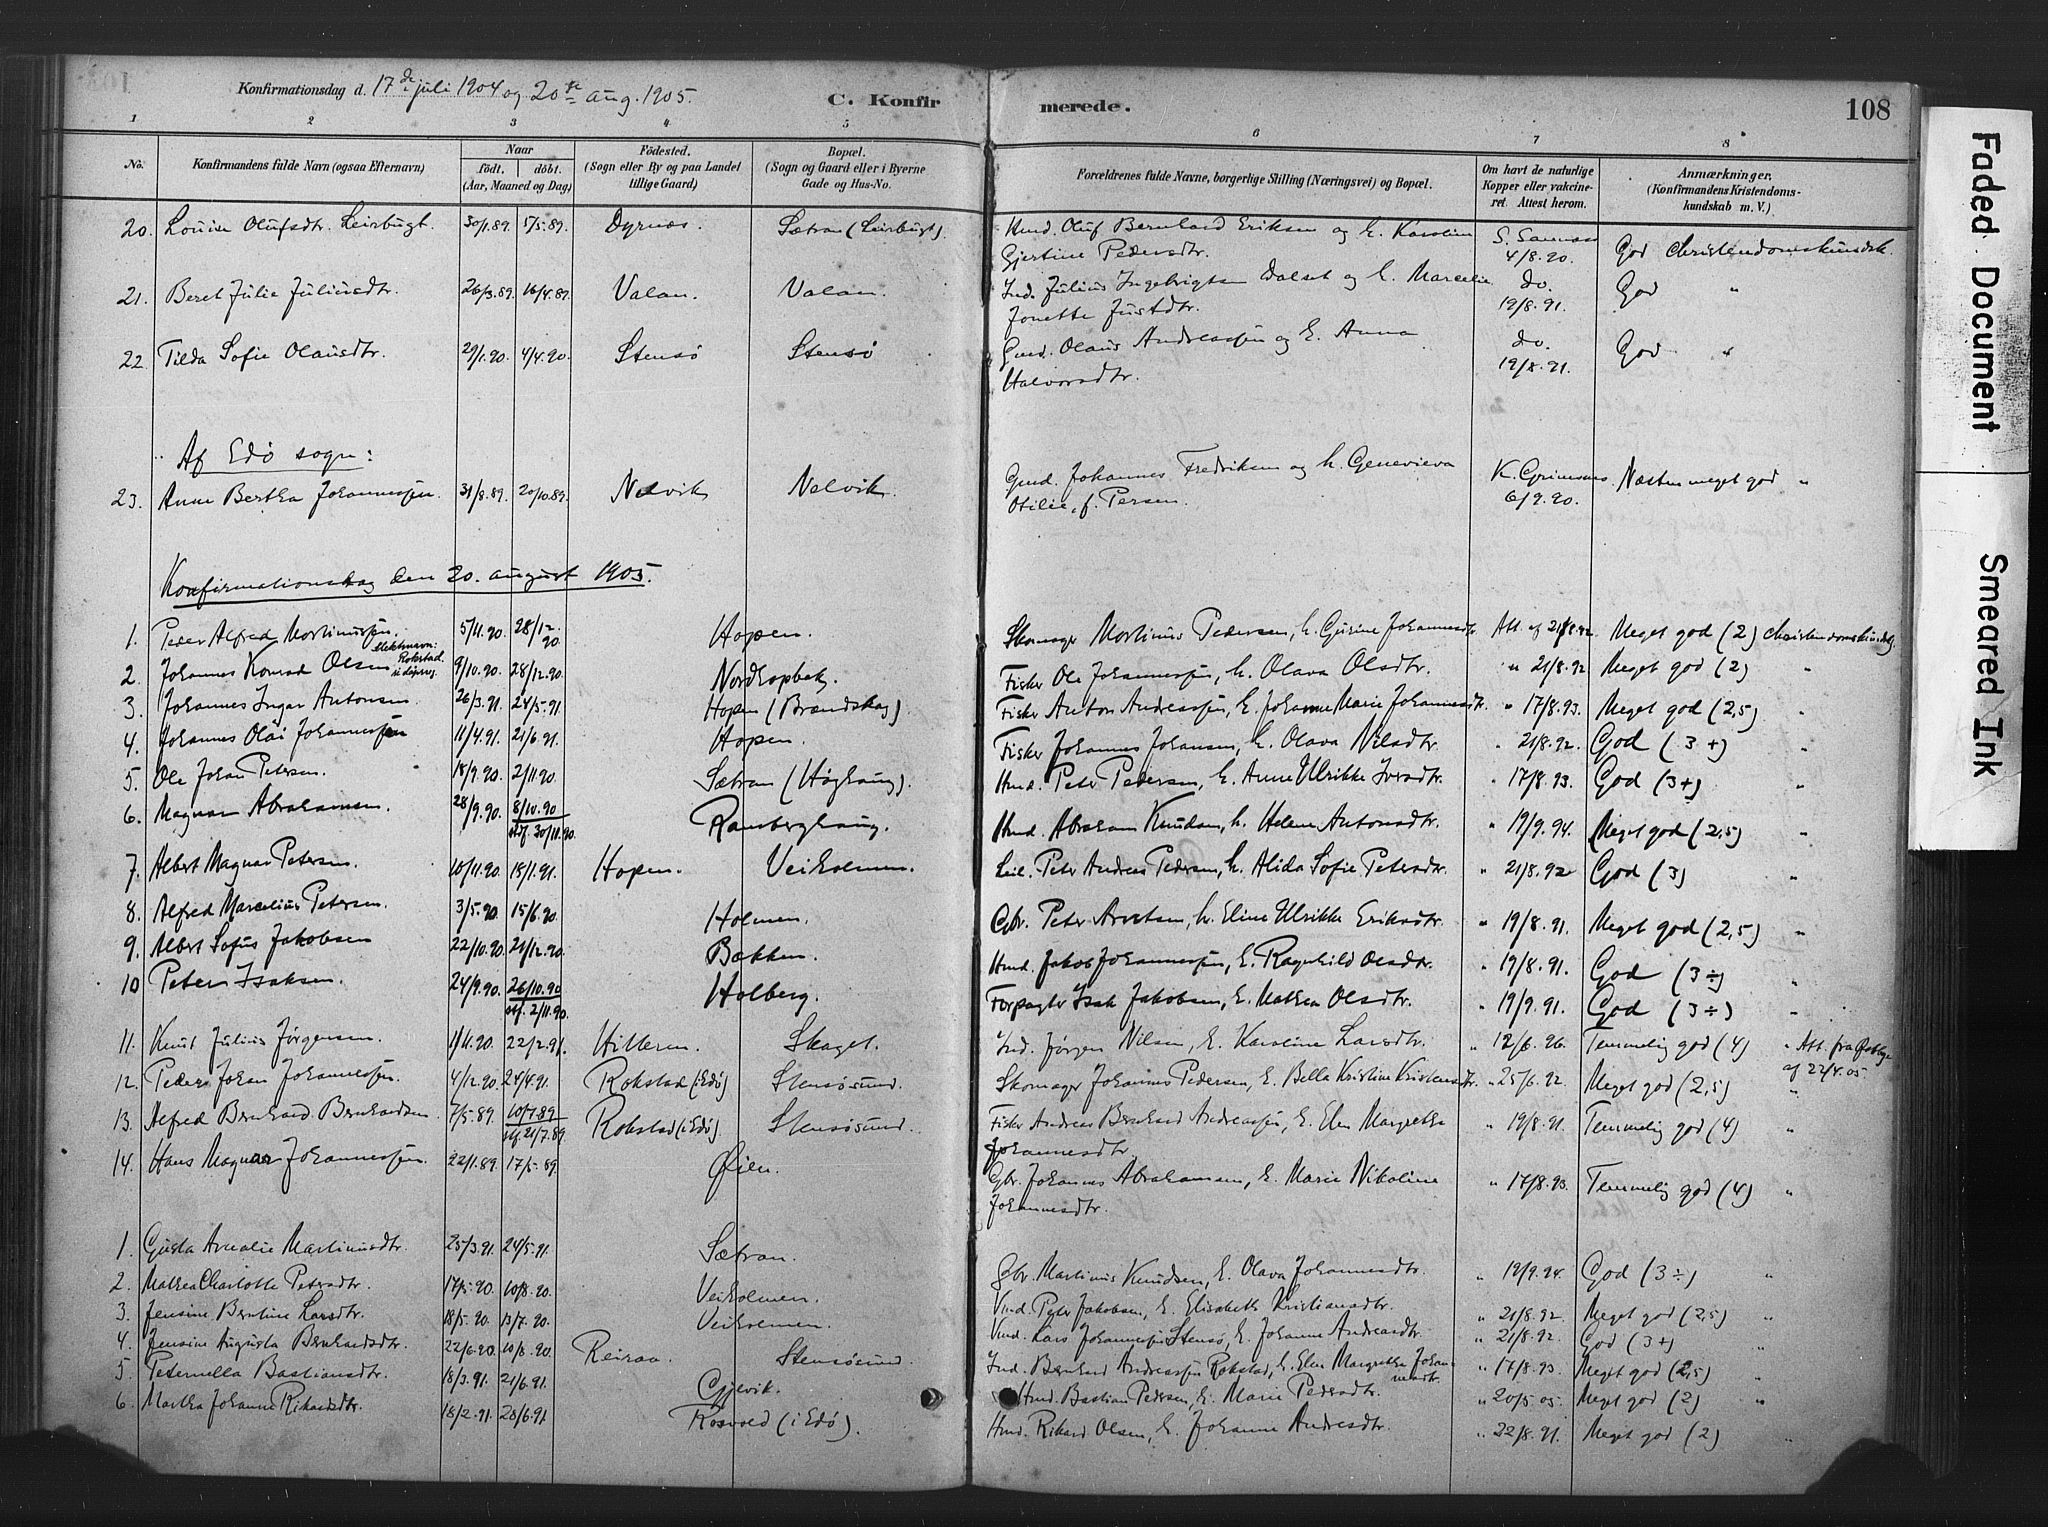 Konfirmationsdag d. 17de juli 1904 og 20de aug. 1905.
C. Konfirmerede.
108
1 2 3 4 5 6 7 8
No. Konfirmandens fulde Navn (ogsaa Efternavn) Naar födt. döbt. (Aar, Maaned og Dag) Födested. (Sogn eller By og paa Landet tillige Gaard) Bopæl. (Sogn og Gaard eller i Byerne Gade og Hus-No. Forældrenes fulde Navne, borgerlige Stilling (Næringsvei) og Bopæl. Om havt de naturlige Kopper eller vakcineret. Attest herom. Anmærkninger. (Konfirmandens Kristendomskundskab m. V.)
20. Louise Olufsdtr. Leirbugt. 30/1.89. 5/5.89. Dyrnæs. Sætran (Leirbugt). Hmd. Oluf Bernhard Eriksen og h. Karoline
Gjertine Pedersdtr. 4/8.90. God Christendomskundsk.
21. Beret Julie Juliusdtr. 26/3.89. 16/4.89. Valan. Valan. Ind. Julius Ingebrigtsen Dalset og h. Marcelie
Jonette Justdtr. do. 19/8.91. God "
22. Tilda Sofie Olausdtr. 29/1.90. 4/4.90. Stensö Stensö Gmd. Olaus Andreassen og h. Anna
Halvorsdtr. do. 19/8.91. God "
Af Edö sogn:
23. Anne Bertha Johannessen. 31/8.89. 20/10.89. Nelvik Nelvik. Gmd. Johannes Fredriksen og h. Genevieva
Otilie, f. Persen. K. Grimsmo 6/9.90. Næsten meget god "
Konfirmationsdag den 20. august 1905.
1. Peder Alfred Martinussen. 5/11.90. 28/12.90 Hopen. Skomager Martinus Pedersen, h. Gurine Johannesdtr. Att. af 21/8.92. Meget god (2) Christendomskundsk.
2. Johannes Konrad Olsen slektsnavn: Rokstad. 9/10.90. 28/12.90. Nordhopbek. Fisker Ole Johannessen, h. Olava Olsdtr. " 21/8.92 Meget god (2) "
3. Johannes Ingar Antonsen. 26/3.91. 24/5.91 Hopen (Brandskag). Fisker Anton Andreassen, h. Johanne Marie Johannesdtr. " 17/8.93. Meget god (2,5) "
4. Johannes Olai Johannessen 11/4.91. 21/6.91. Hopen. Fisker Johannes Johansen, h. Olava Nilsdtr. " 21/8.92. God (3+) "
5. Ole Johan Petersen. 18/9.90. 2/11.90. Sætran (Höghaug). Hmd. Peter Pedersen, h. Anne Ulrikke Iversdtr. " 17/8.93. God (3+) "
6. Magnar Abrahamsen. 28/9.90. 8/10.90 stf. 30/11.90. Ramberghaug. Hmd. Abraham Knudsen, h. Helene Antonsdtr. " 19/9.94. Meget god (2,5) "
7. Albert Magnar Petersen. 10/11.90. 18/1.91. Hopen. Veiholmen. Leil. Peter Andreas Pedersen, h. Alida Sofie Petersdtr. " 21/8.92 God (3) "
8. Alfred Marcelius Petersen. 3/5.90. 15/6.90. Holmen. Gbr. Peter Arntsen, h. Eline Ulrikke Eriksdtr. " 19/8.91. Meget god (2,5) "
9. Albert Sofus Jakobsen 22/10.90. 21/12.90. Bækken. Hmd. Jakob Johannessen, h. Ragnhild Olsdtr. " 19/8.91. God (3÷) "
10 Peter Isaksen. 24/9.90. 26/10.90 stf. 2/11.90. Holberg. Forpagter Isak Jakobsen, h. Mathea Olsdtr. " 19/9.91. God (3÷) "
11. Knut Julius Jørgensen. 1/11.90. 22/2.91. Hitteren. Skaget. Ind. Jørgen Nilsen, h. Karoline Larsdtr. " 12/6.96. Temmelig god (4) " Att. fra
af 22/4.05
12. Peder Johan Johannessen. 4/12.90. 24/4.91. Rokstad (i Edö) Stensösund. Skomager Johannes Pedersen, h. Bella Kristine Kristensdtr. " 25/6.92. Meget god (2,5) "
13. Alfred Bernhard Bernhardsen 7/5.89. 10/7.89 stf. 21/7.89 Rokstad (i Edö). Stensösund. Fisker Andreas Bernhard Andreassen, h. Elen Margrethe
Johannesdtr " 19/8.91. Temmelig god (4) "
14. Hans Magnar Johannessen. 22/1.89. 17/5.89. Øien. Gbr. Johannes Abrahamsen, h. Marie Nikoline
Johannesdtr. " 17/8.93. Temmelig god (4) "
1. Gusta Amalie Martinusdtr. 25/3.91. 24/5.91. Sætran. Gbr. Martinus Knudsen, h. Olava Johannesdtr. " 19/9.94. God (3÷) "
2. Mathea Charlotte Petersdtr. 17/5.90. 10/8.90. Veiholmen. Vmd. Peter Jakobsen, h. Elisabeth Kristiansdtr. " 21/8.92. Meget god (2,5) "
3. Jensine Berntine Larsdtr. 18/5.90. 13/7.90. Veiholmen. Vmd. Lars Johannessen Stensö, h. Johanne Andreasdtr. " 21/8.92. God (3+)
4. Jensine Augusta Bernhardsdtr. 22/6.90. 10/8.90. Reiraa. Stensösund. Ind. Bernhard Andreassen Rokstad, h. Elen Margrethe Johannesdtr. " 17/8.93. Meget god (2,5) "
5. Peternella Bastiansdtr. 18/3.91. 21/6.91. Gjevik. Hmd. Bastian Pedersen, h. Marie Pedersdtr. " 20/5.05. Meget god (2) "
6. Martha Johanne Rikardsdtr. 18/2.91. 28/6.91 Rosvold (i Edö). Hmd. Rikard Olsen, h. Johanne Andreasdtr. " 22/8.91. Meget god (2) "
Faded Document
Smeared Ink